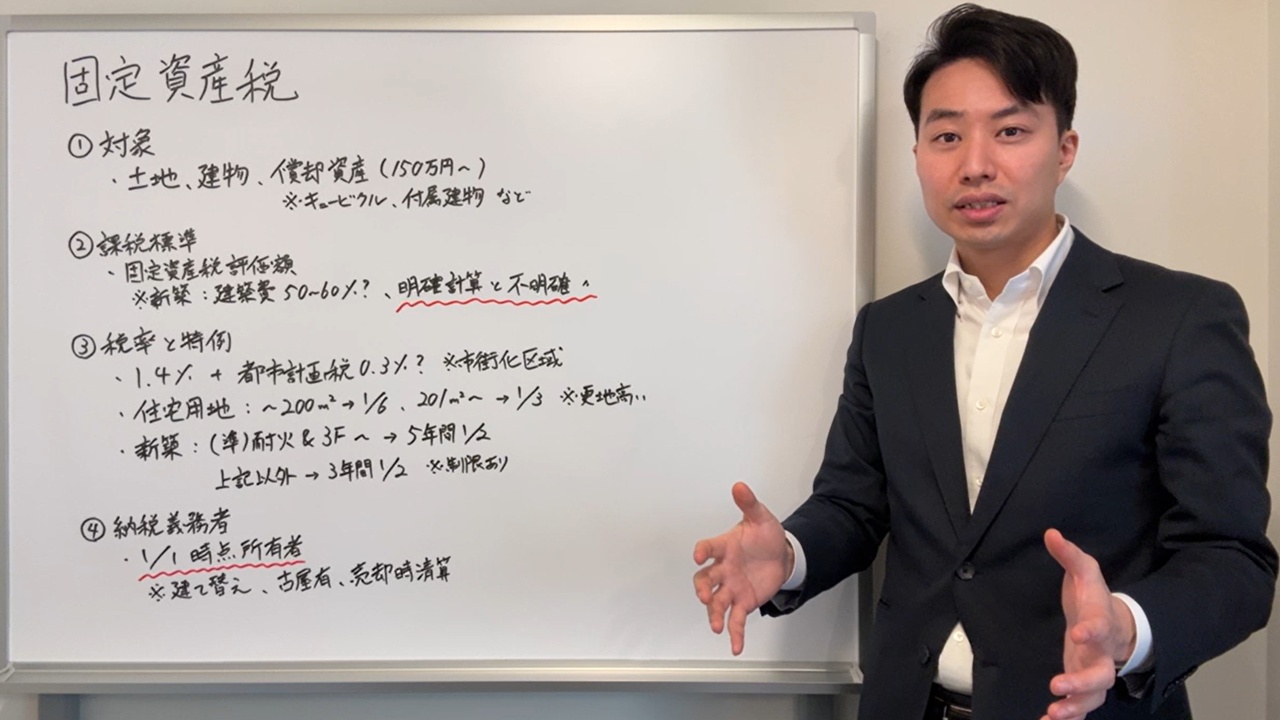 固定資産税
① 対象
・土地、建物、償却資産(150万円〜)
※キュービクル、付属建物 など
② 課税標準
・固定資産税評価額
※新築:建築費50~60%?、明確計算と不明確
③ 税率と特例
・1.4% + 都市計画税0.3%? ※市街化区域
・住宅用地:~200m²→1/6、201m²~→1/3 ※更地高い
・新築:(準)耐火&3F~→5年間1/2
上記以外→3年間1/2 ※制限あり
④ 納税義務者
・1/1時点所有者
※建て替え、古屋有、売却時清算